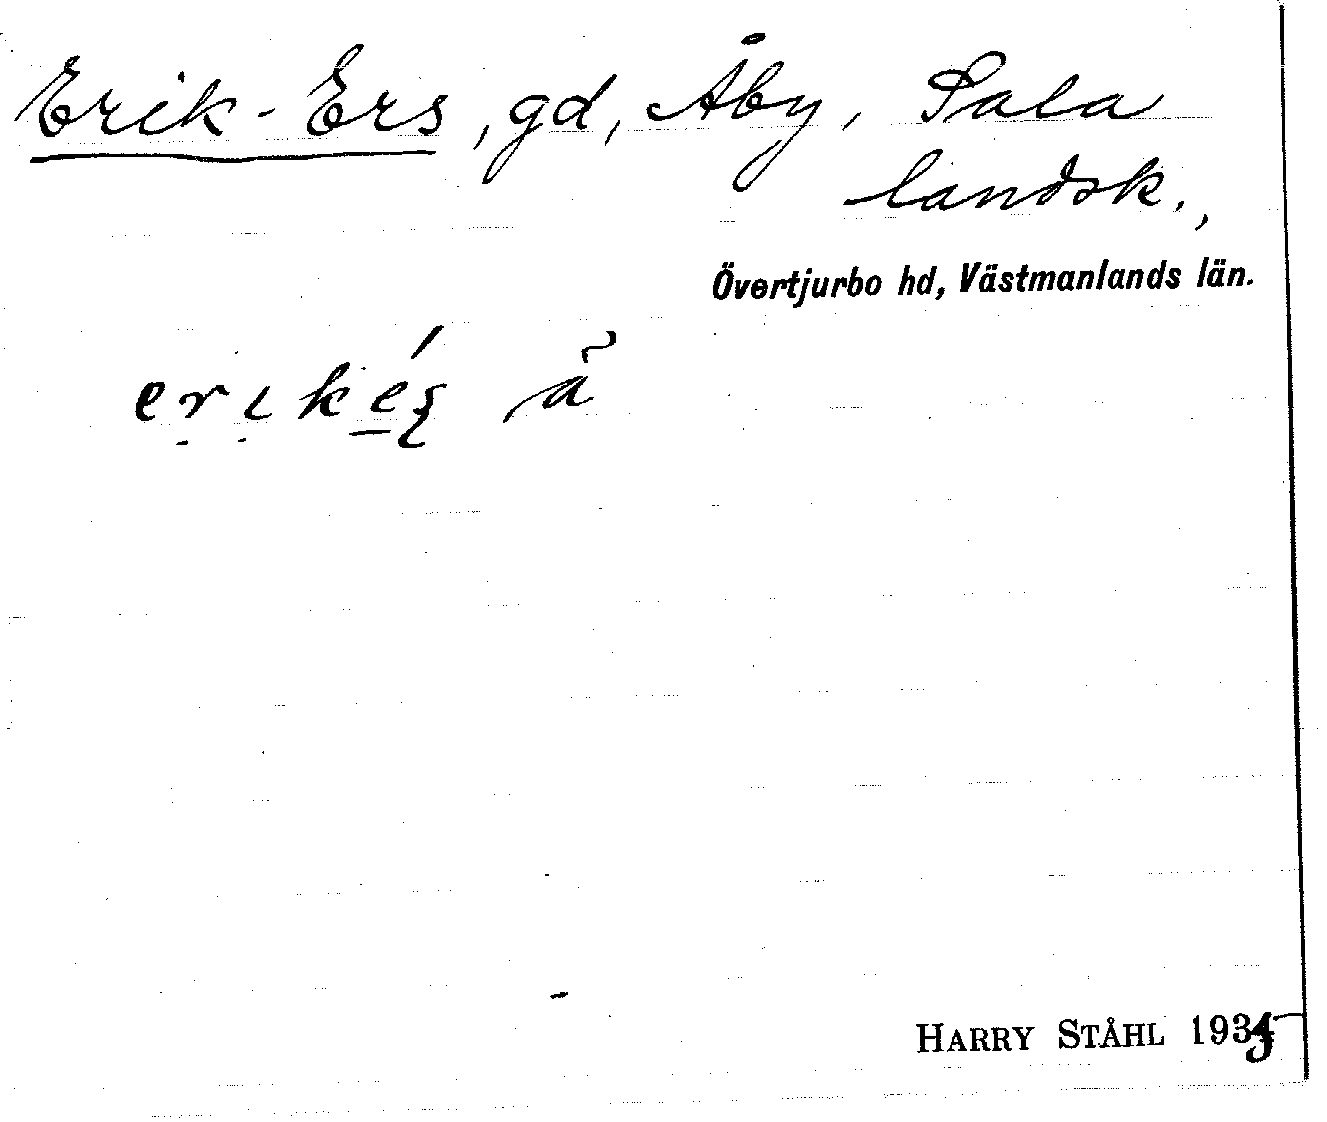 Erik-Ers, gd, Åby, Sala
landsk.,
Övertjurbo hd, Västmanlands län.
HARRY STÅHL 1935